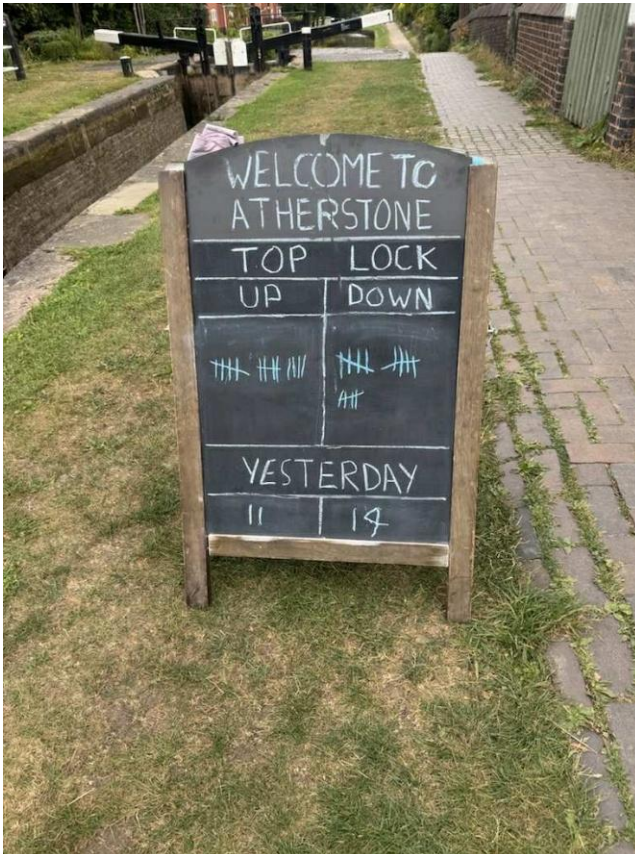 WELCOME TO
ATHERSTONE
TOP LOCK
UP DOWN
YESTERDAY
11 14